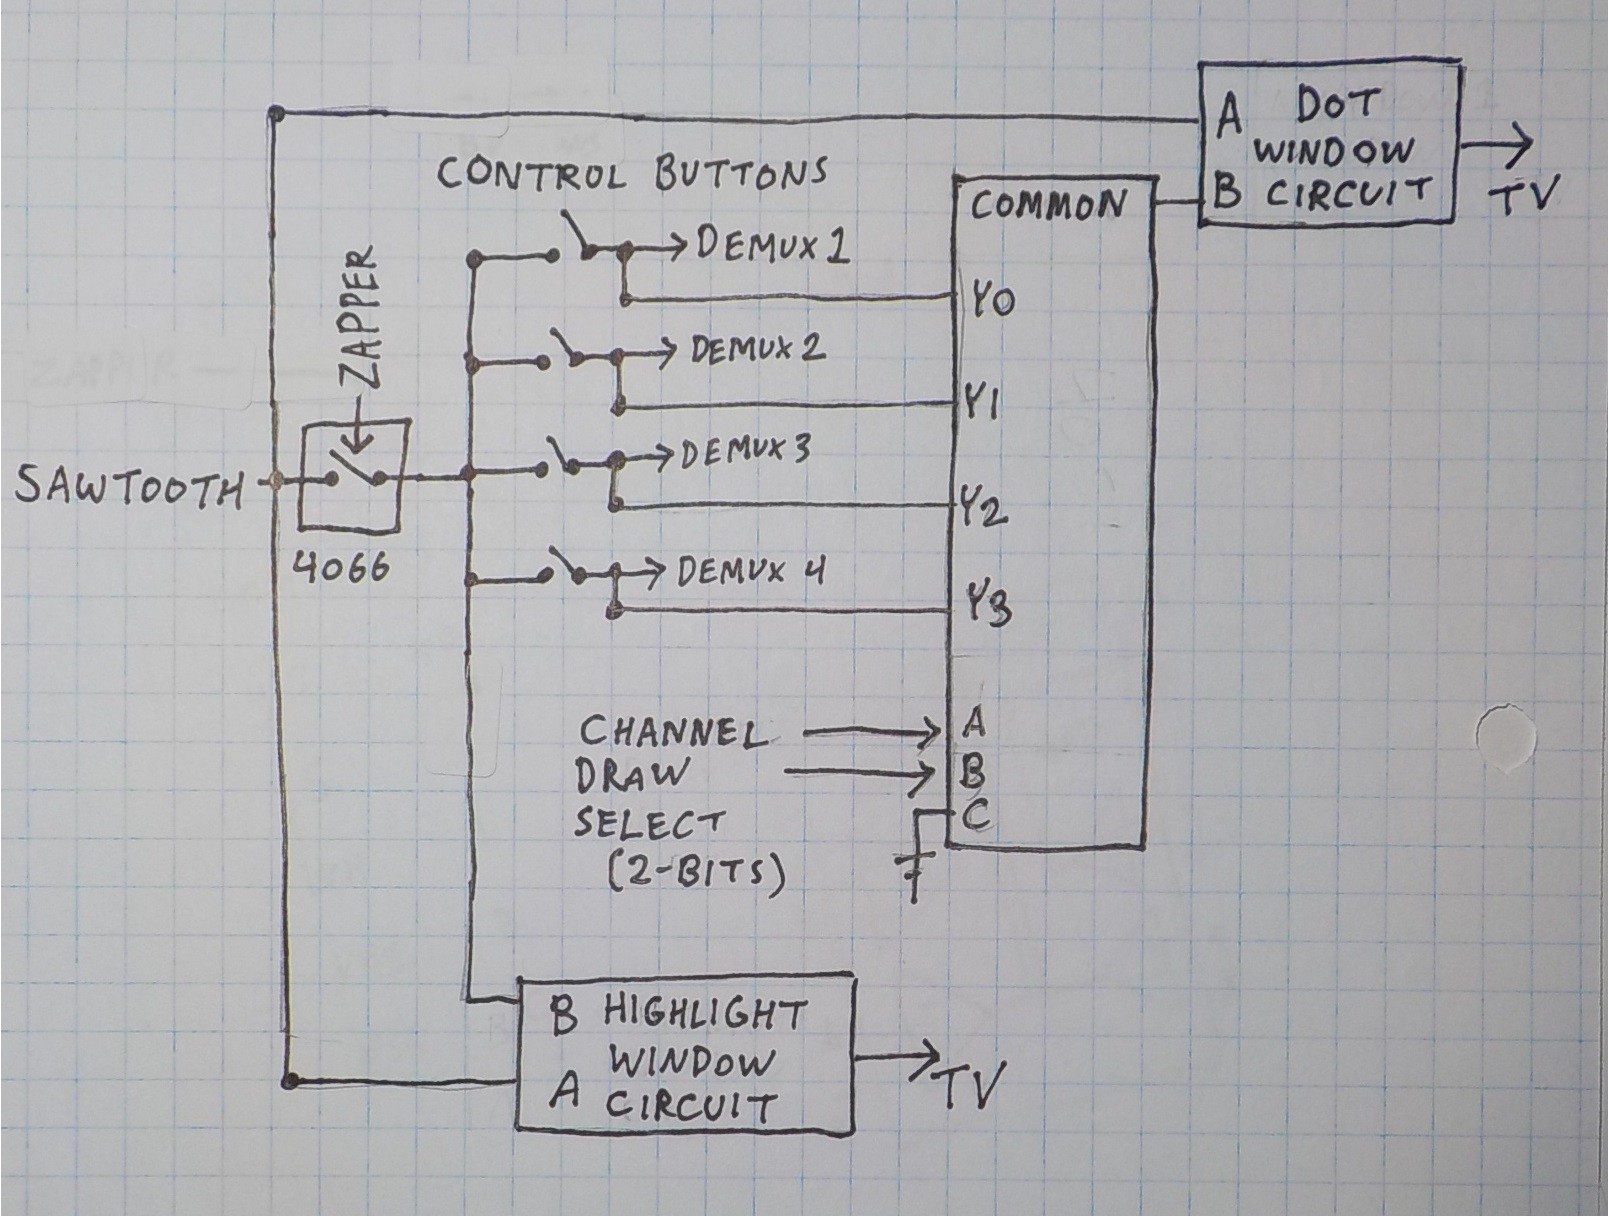 DOT
WINDOW
CIRCUIT
A
B
TV
CONTROL BUTTONS
COMMON
DEMUX 1
Y0
ZAPPER
DEMUX 2
Y1
DEMUX 3
SAWTOOTH
Y2
4066
DEMUX 4
Y3
CHANNEL
DRAW
SELECT
(2-BITS)
A
B
C
B HIGHLIGHT
WINDOW
A CIRCUIT
TV